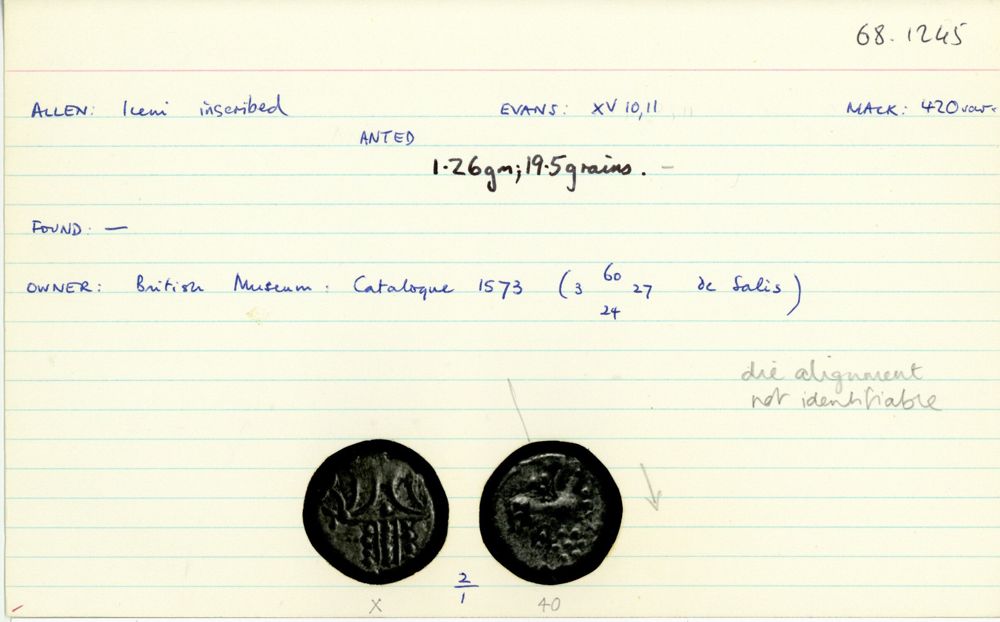 68.1245
ALLEN: Iceni inscribed EVANS: XV 10,11 MACK: 420 var.
ANTED
1.26gm; 19.5grains. —
FOUND: —
OWNER: British Museum: Catalogue 1573 (3 60/24 27 de Salis)
die alignment
not identifiable
2/1
X 40